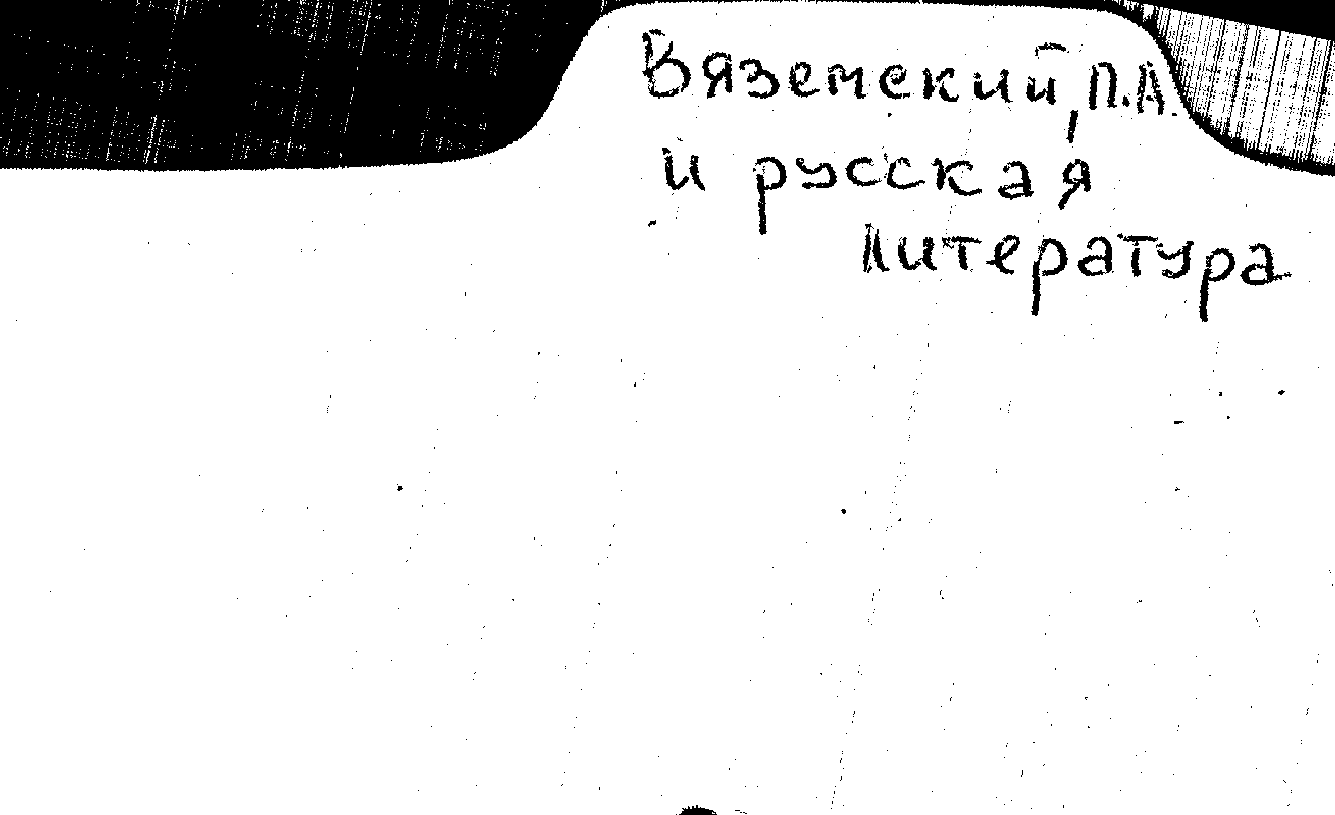 Вяземский, П.А.
и русская
литература